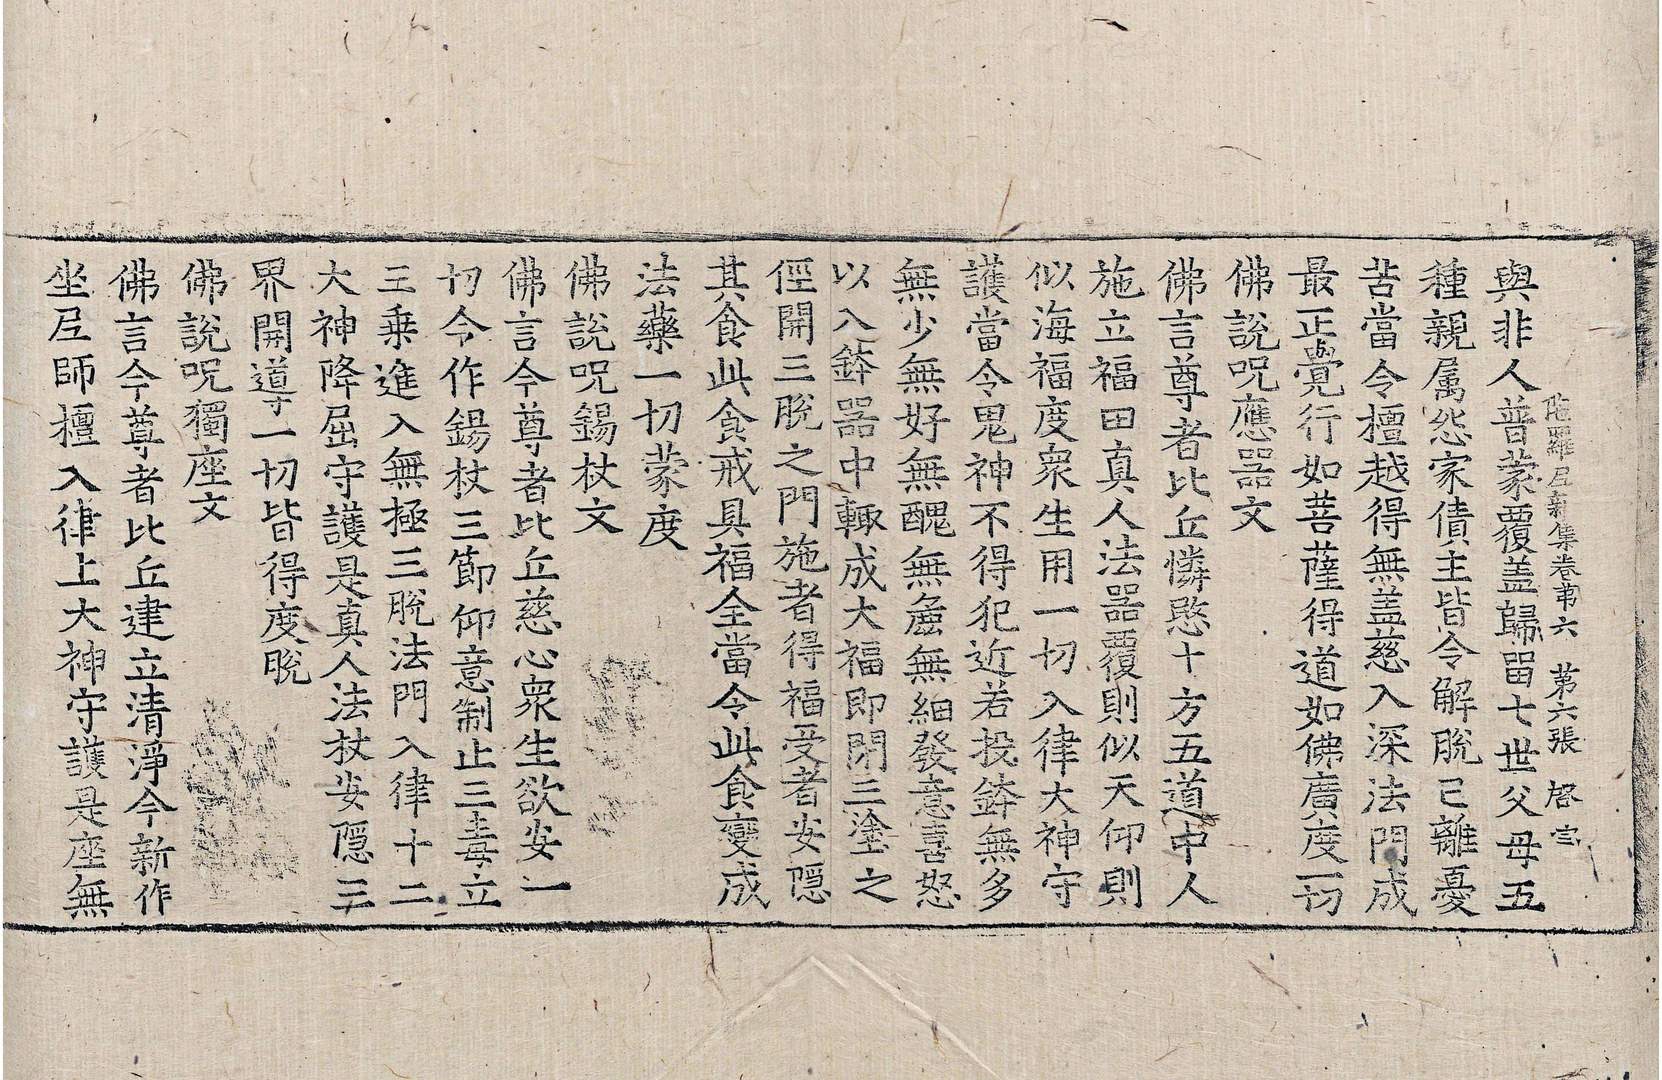 陁羅尼新集卷苐六 第六張 啓 
與非人普蒙覆盖歸留七世父母五
種親属怨家債主皆令解脫已離憂
苦當令檀越得無盖慈入深法門成
最正覺行如菩薩得道如佛廣度一切
佛說呪應器文
佛言尊者比丘憐愍十方五道中人
施立福田真人法器覆則似天仰則
似海福度衆生用一切入律大神守
護當令鬼神不得犯近若投鉢無多
無少無好無醜無麁無細發意喜怒
以入鉢器中輙成大福即閇三塗之
俓開三脫之門施者得福受者安隱
其食此食戒具福全當令此食變成
法藥一切蒙度
佛說呪錫杖文
佛言今尊者比丘慈心衆生欲安一
切今作錫杖三節仰意制止三毒立
三乗進入無極三脫法門入律十二
大神降屈守護是真人法杖安隱三
界開導一切皆得度脫
佛說呪獨座文
佛言今尊者比丘建立清淨今新作
坐尼師檀入律上大神守護是座無